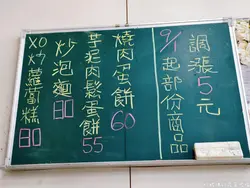 9/1起部份商品
調漲5元
燒肉蛋餅60
芋泥肉鬆蛋餅55
炒泡麵80
XO炒蘿蔔糕80